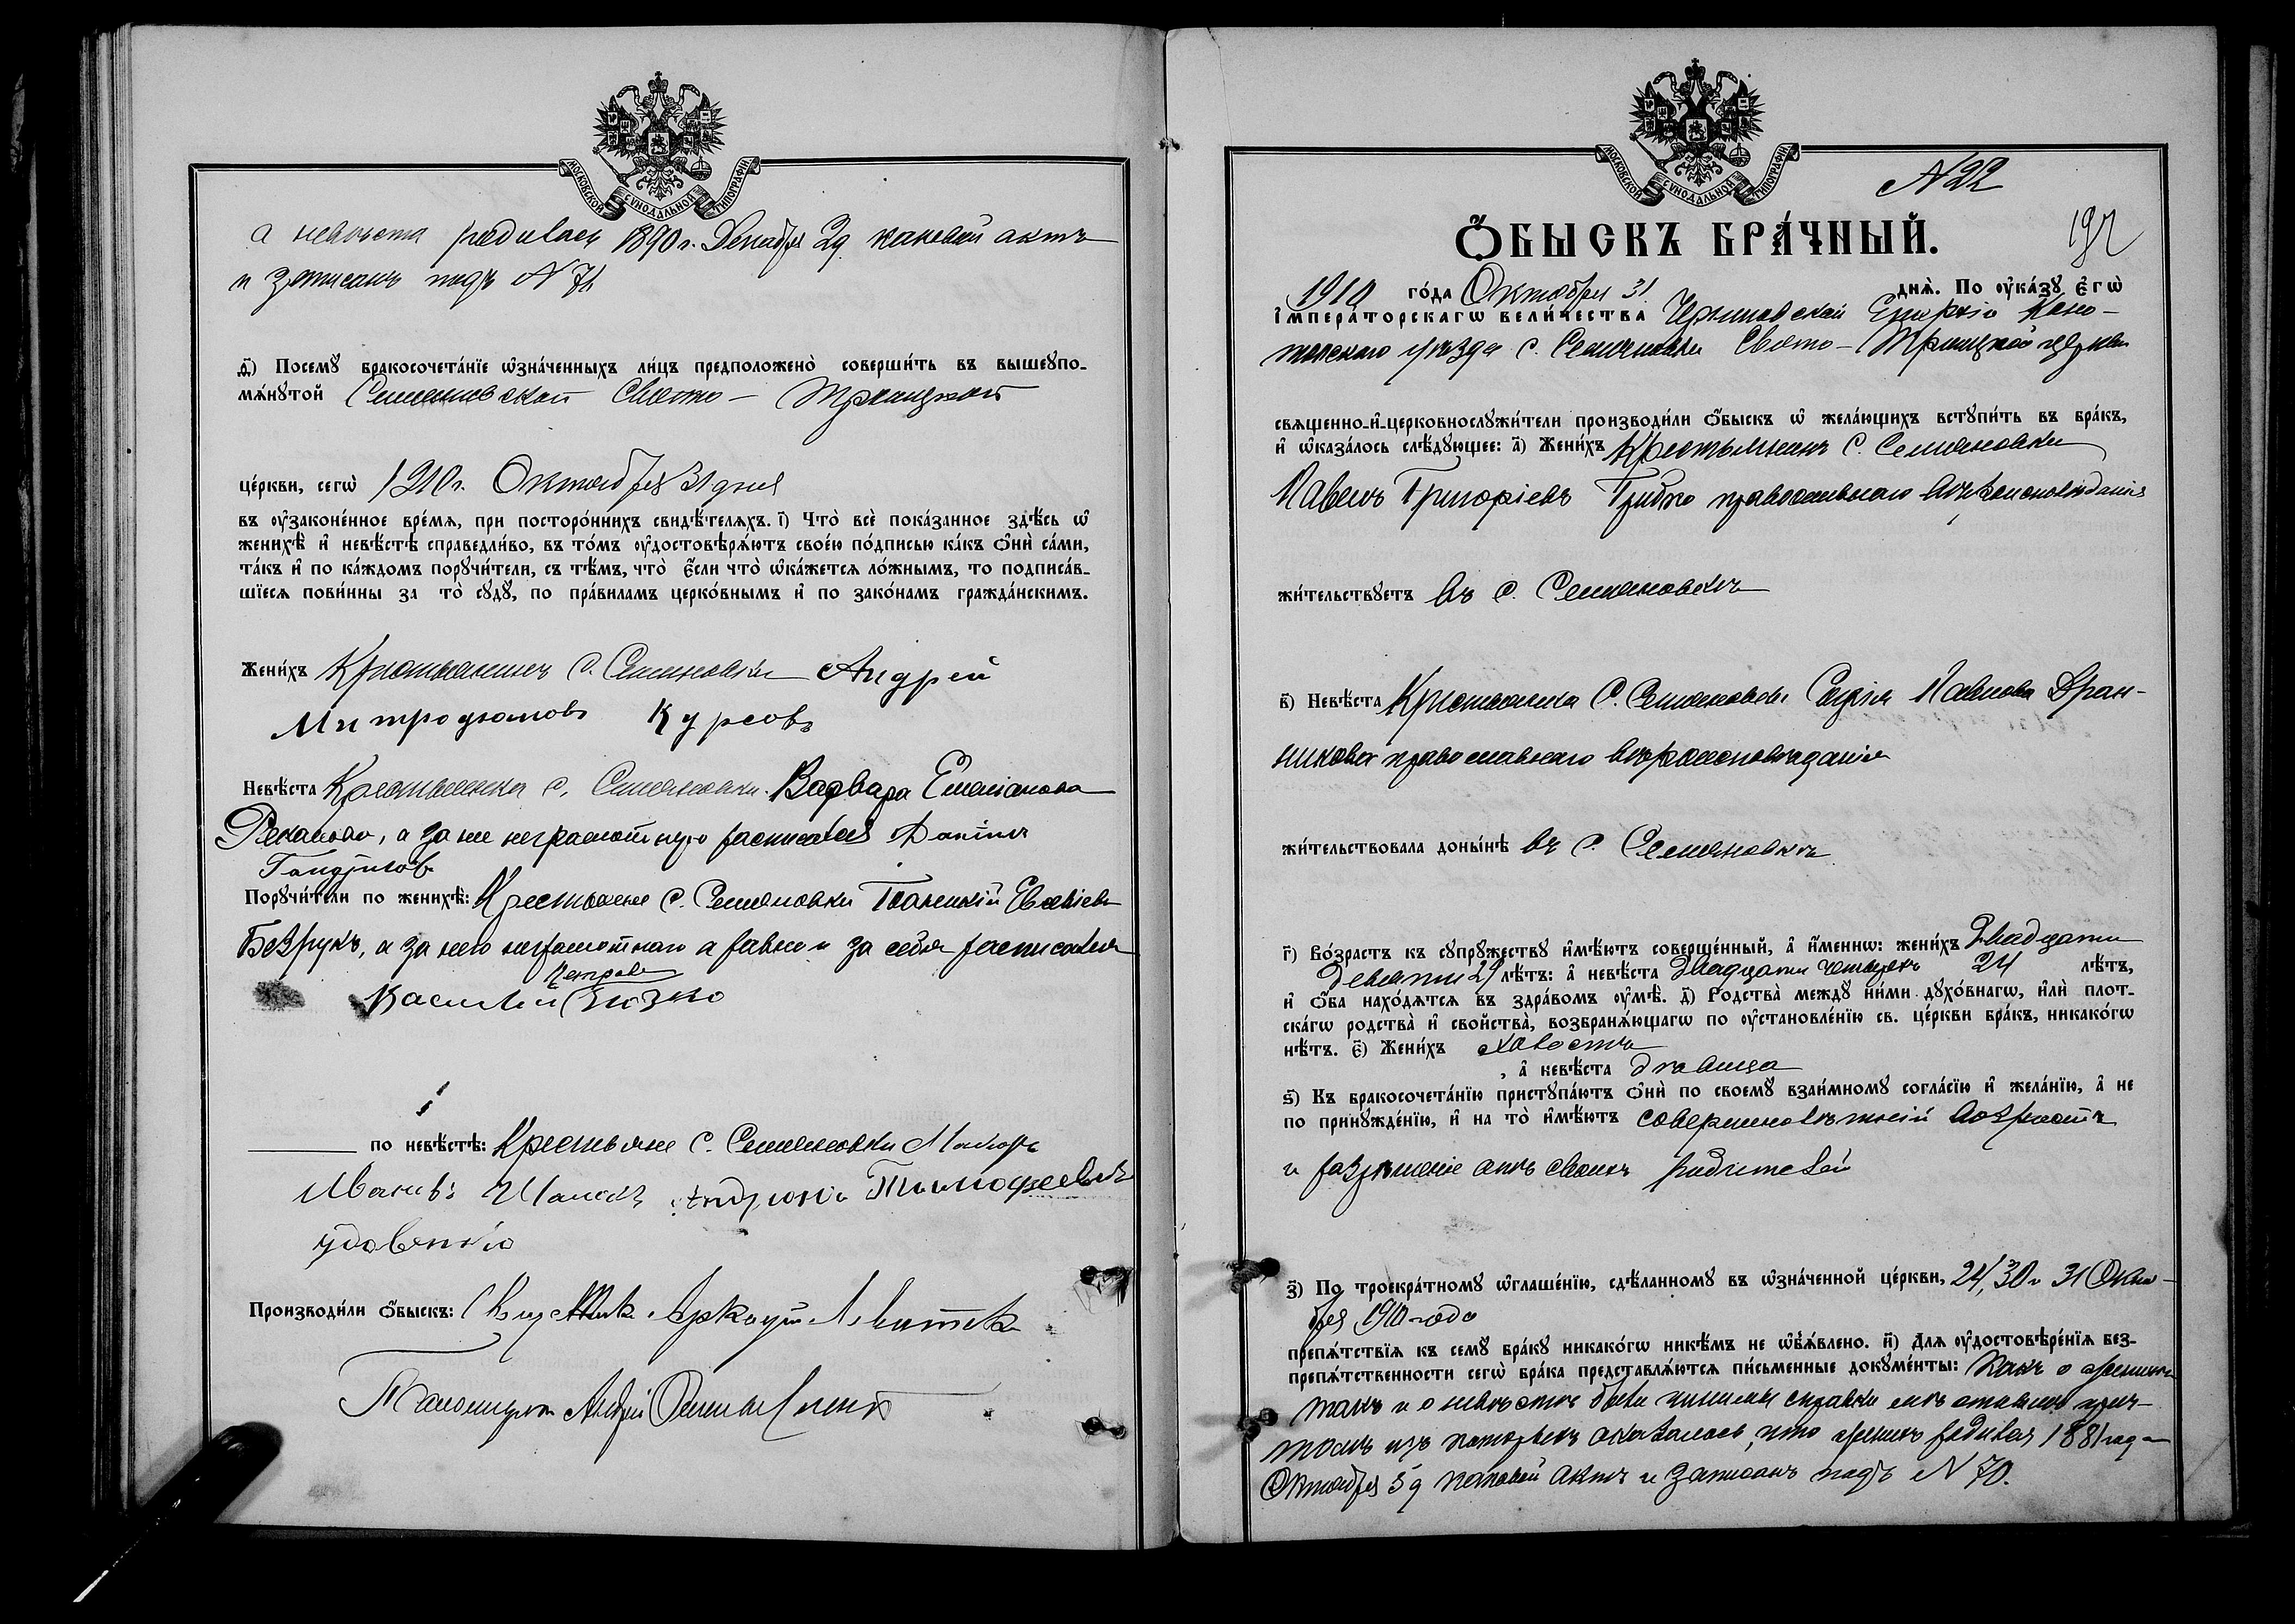 МОСКОВСКОЙ СѴНОДАЛЬНОЙ ТИПОГРАФІИ
а невѣста родилась 1890 г. Декабря 2 д. каковой актъ
и записанъ подъ N 71
д҃) Посемꙋ бракосочета́нїе ѡ҆зна́ченныхъ ли́цъ предположено̀ соверши́ть въ вышеꙋпо-
мѧ́нꙋтой Семяновской Свято – Троицкой
це́ркви, сегѡ̀ 1910 г. Октября 31 дня
въ ᲂу҆законе́нное вре́мѧ, при посторо́ннихъ свидѣ́телѧхъ. і҃) Что̀ всѐ пока́занное здѣ́сь ѡ҆
женихѣ̀ и҆ невѣ́стѣ справедли́во, въ то́мъ ᲂу҆достовѣрѧ́ютъ свое́ю по́дписью ка́къ ѻ҆нѝ са́ми,
та́къ и҆ по ка́ждомъ порꙋчи́тели, съ тѣ́мъ, что̀ є҆́сли что̀ ѡ҆ка́жетсѧ ло́жнымъ, то подписа́в-
шїесѧ пови́нны за то̀ сꙋдꙋ̀, по пра́виламъ церко́внымъ и҆ по зако́намъ гражда́нскимъ.
Жени́хъ Крестьянинъ с. Семяновки Андрей
Митрофановъ Курсовъ
Невѣ́ста Крестьянка с. Семяновки Варвара Емелiанова
а за нее неграмотную расписался
Порꙋчи́тели по женихѣ̀: Крестьяне с. Семяновки
Безрукъ, а за него неграмотнаго а равно и за себя росписался
Петровъ
Василий
по невѣ́стѣ: Крестьяне с. Семяновки
Ивановъ Тимофеевъ
Производи́ли ѻ҆́быскъ: Аркадiй
Андрей
МОСКОВСКОЙ СѴНОДАЛЬНОЙ ТИПОГРАФІИ
N 22
ѺБЫСКЪ БРА́ЧНЫЙ.
192
1910 го́да Октября 31 днѧ̀. По ᲂу҆ка́зꙋ є҆гѡ̀
и҆мпера́торскагѡ вели́чества Черниговской Епархiи Коно-
топскаго уѣзда с. Семяновки Свято – Троицкой церкви
свѧщенно-и҆-церковнослꙋжи́тели производи́ли ѻ҆́быскъ ѡ҆ жела́ющихъ встꙋпи́ть въ бра́къ,
и҆ ѡ҆каза́лось слѣ́дꙋющее: а҃) Жени́хъ Крестьянинъ с. Семяновки
Павелъ Григорiевъ православнаго вѣроисповѣданiя
жи́тельствꙋетъ въ с. Семяновкѣ
в҃) Невѣ́ста Крестьянка с. Семяновки Павлова
православнаго вѣроисповѣданiя
жи́тельствовала доны́нѣ въ с. Семяновкѣ
г҃) Во́зрастъ къ сꙋпрꙋ́жествꙋ и҆мѣ́ютъ соверше́нный, а҆ и҆́меннѡ: жени́хъ Двадцати
девяти 29 лѣ́тъ: а҆ невѣ́ста двадцати четырехъ 24 лѣ́тъ,
и҆ ѻ҆́ба нахо́дѧтсѧ въ здра́вомъ ᲂу҆мѣ̀. д҃) Родства̀ междꙋ̀ ни́ми дꙋхо́внагѡ, и҆лѝ плот-
ска́гѡ родства̀ и҆ сво́йства̀, возбранѧ́ющагѡ по ᲂу҆становле́нїю св. це́ркви бра́къ, никако́гѡ
нѣ́тъ. є҃) Жени́хъ холостъ
, а҆ невѣ́ста дѣвица
ѕ҃) Къ бракосочета́нїю пристꙋпа́ютъ ѻ҆нѝ по своемꙋ̀ взаи́мномꙋ согла́сїю и҆ жела́нїю, а҆ не
по принꙋжде́нїю, и҆ на то̀ и҆мѣ́ютъ совершеннолѣтнiй возрастъ
и разрѣшенiе отъ своихъ родителей
з҃) По троекра́тномꙋ ѡ҆глаше́нїю, сдѣ́ланномꙋ въ ѡ҆зна́ченной це́ркви, 24, 30 и 31 Октя-
бря 1910 года
препѧ́тствїѧ къ семꙋ̀ бра́кꙋ никако́гѡ никѣ́мъ не ѡ҆б̾ѧ́влено. и҃) Длѧ ᲂу҆достовѣре́нїѧ без-
препѧ́тственности сегѡ̀ бра́ка представлѧ́ютсѧ пи́сьменные докꙋме́нты: какъ о женихѣ
такъ и о невѣстѣ были чинимы справки
изъ которыхъ оказалось, что женихъ родился 1881 года
Октября 5 д. каковой актъ и записанъ подъ N 70.